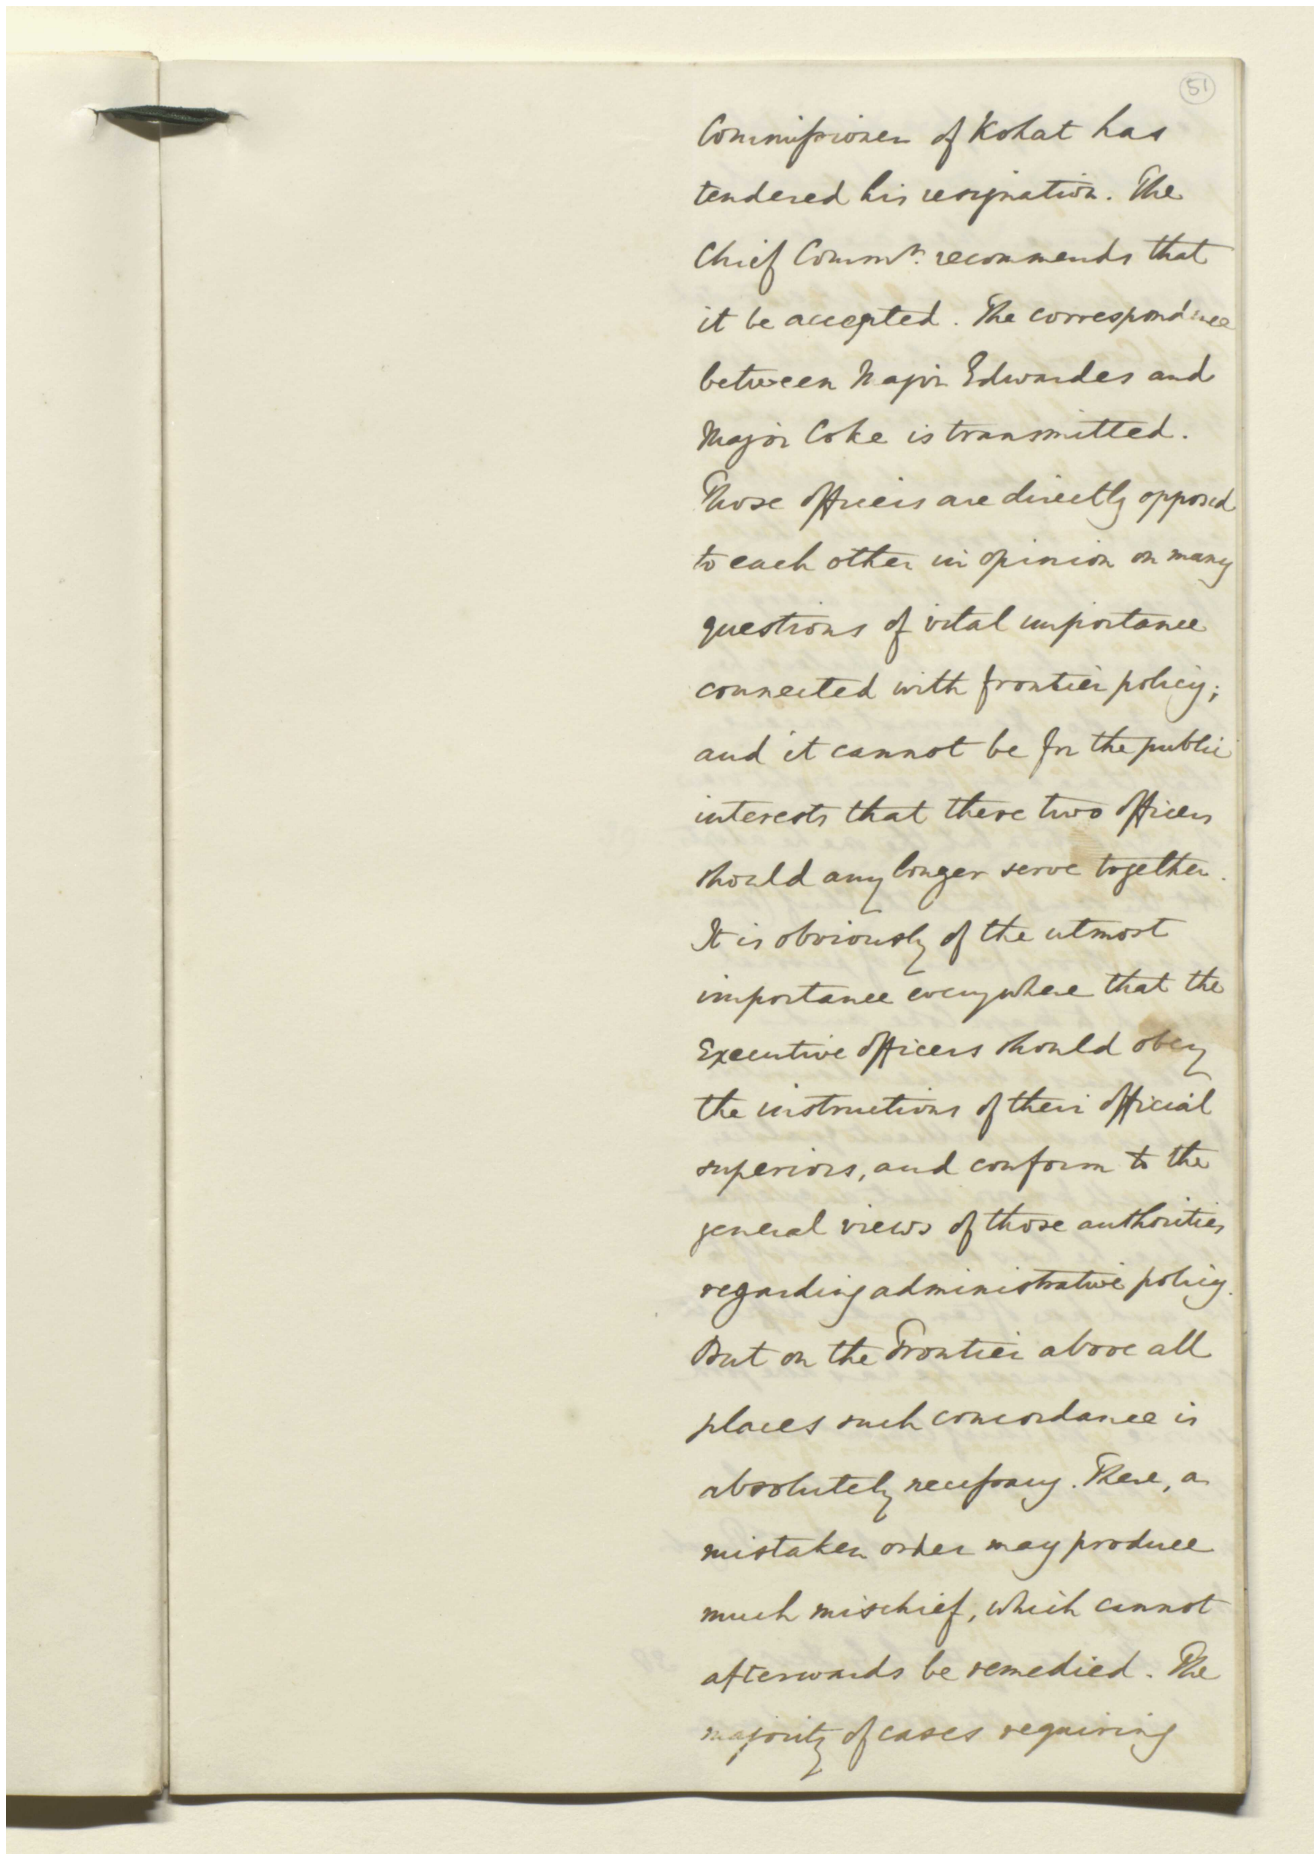 51
Commissioner of Kohat has
tendered his resignation. The
Chief Commr. recommends that
it be accepted. The correspondence
between Major Edwardes and
Major Coke is transmitted.
Those officers are directly opposed
to each other in opinion on many
questions of vital importance
connected with frontier policy;
and it cannot be for the public
interests that these two officers
should any longer serve together.
It is obviously of the utmost
importance everywhere that the
Executive officers should obey
the instructions of their official
superiors, and conform to the
general views of those authorities
regarding administrative policy.
But on the Frontier above all
places such concordance is
absolutely necessary. There, a
mistaken order may produce
much mischief, which cannot
afterwards be remedied. The
majority of cases requiring